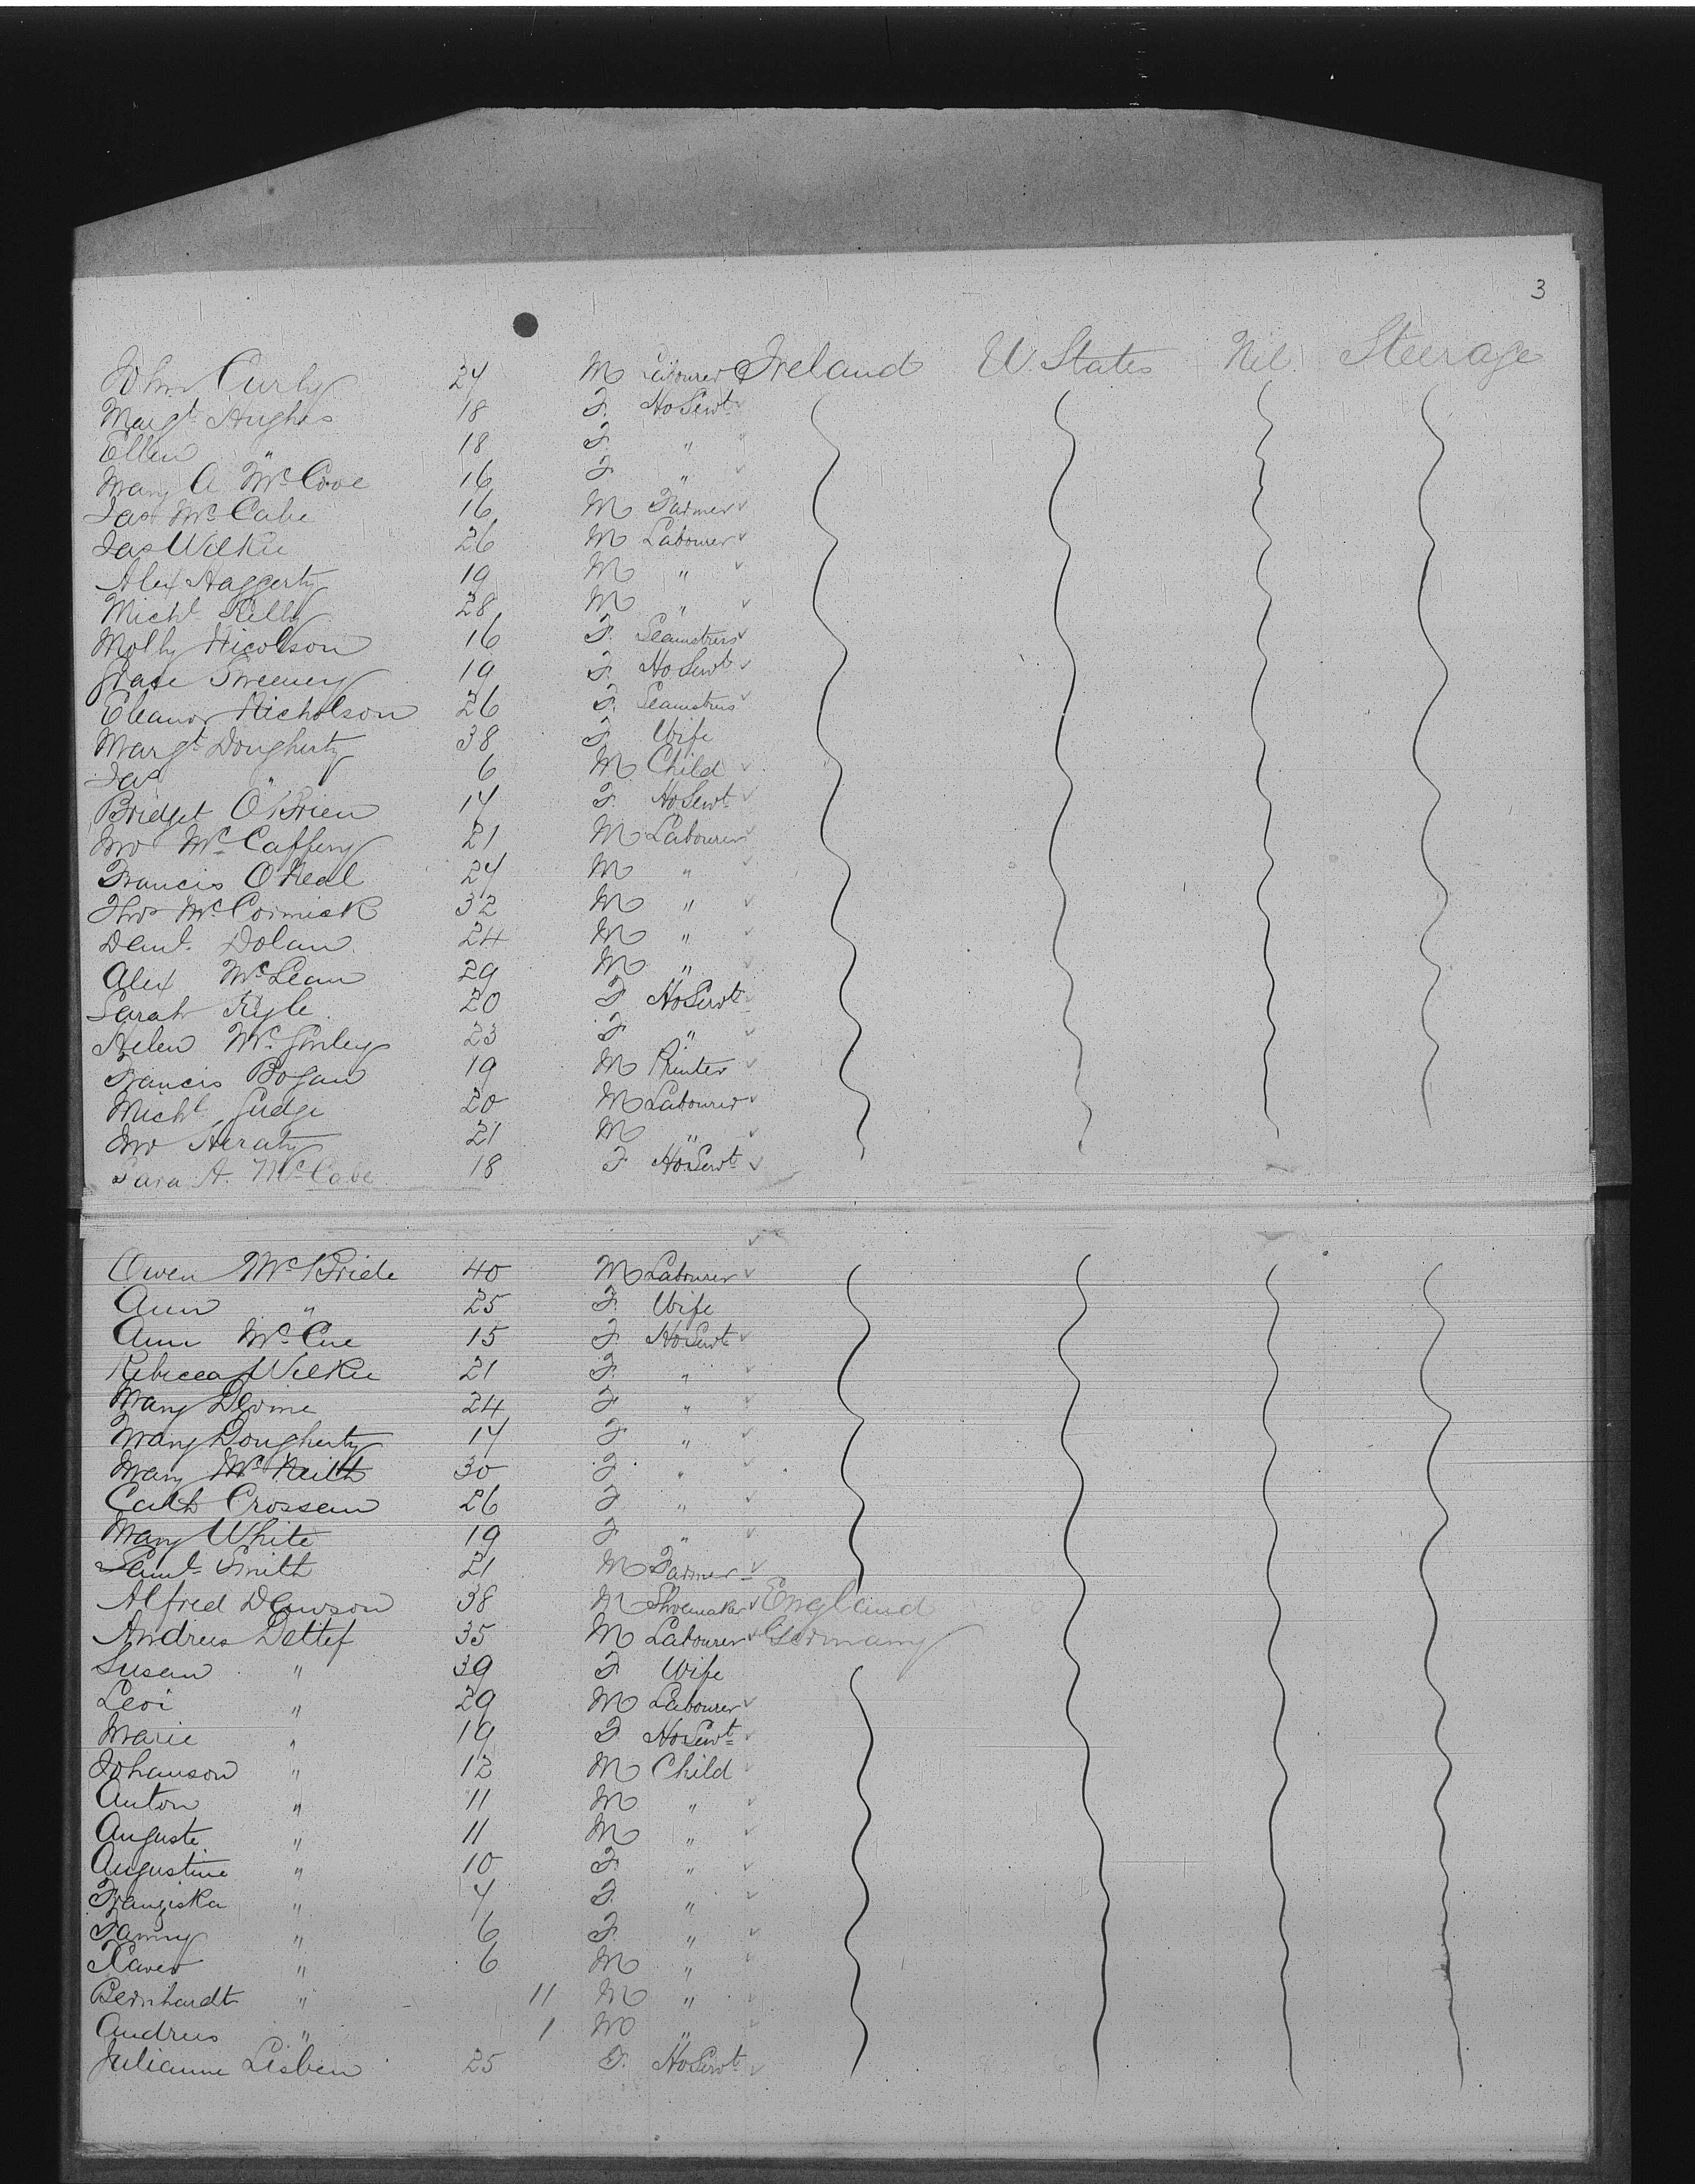 3
John Curly 24 M Labourer Ireland U States Nil Steerage
Margt Hughes 18 F. Ho Servt
Ellen " 18 F. "
Mary A McCove 16 F "
Jas McCabe 16 M Farmer
Jas Wilkie 26 M Labourer
Alex Haggerty 19 M "
Michl Kelly 28 M "
Molly Nicolson 16 F. Seamstress
Grace Sweeney 19 F. Ho Servt
Eleanor Nicholson 26 F. Seamstress
Margt Dougherty 38 F Wife
Jas " 6 M Child
Bridget O'Brien 14 F. Ho Servt
Jno McCaffery 21 M Labourer
Francis O'Neal 24 M "
Thos McCormick 32 M "
Danl. Dolan 24 M "
Alex McLean 29 M "
Sarah Kyle 20 F Ho Servt
Helen McGinley 23 F "
Francis Bogan 19 M Printer
Michl Judge 20 M Labourer
Jno Heraty 21 M "
Sara A. McCabe 18 F Ho Servt
Owen McBride 40 M Labourer
Ann " 25 F. Wife
Ann McCue 15 F. Ho Servt
Rebecca Wilkie 21 F. "
Mary Devine 24 F "
Mary Dougherty 14 F "
Mary 30 F "
Cath Crossan 26 F "
Mary White 19 F "
Saml Smith 21 M Farmer
Alfred Dawson 38 M Shoemaker England
Andreus Dettef 35 M Labourer Germany
Susan " 39 F Wife
Levi " 29 M Labourer
Marie " 19 F Ho Servt
Johanson " 12 M Child
Anton " 11 M "
Auguste " 11 M "
Augustine " 10 F. "
Franziska " 7 F. "
Fanny " 6 F. "
Xaver " 6 M "
Bernhardt " 11 M "
Andreus " 1 M "
Julianne Lisben 25 F. Ho Servt